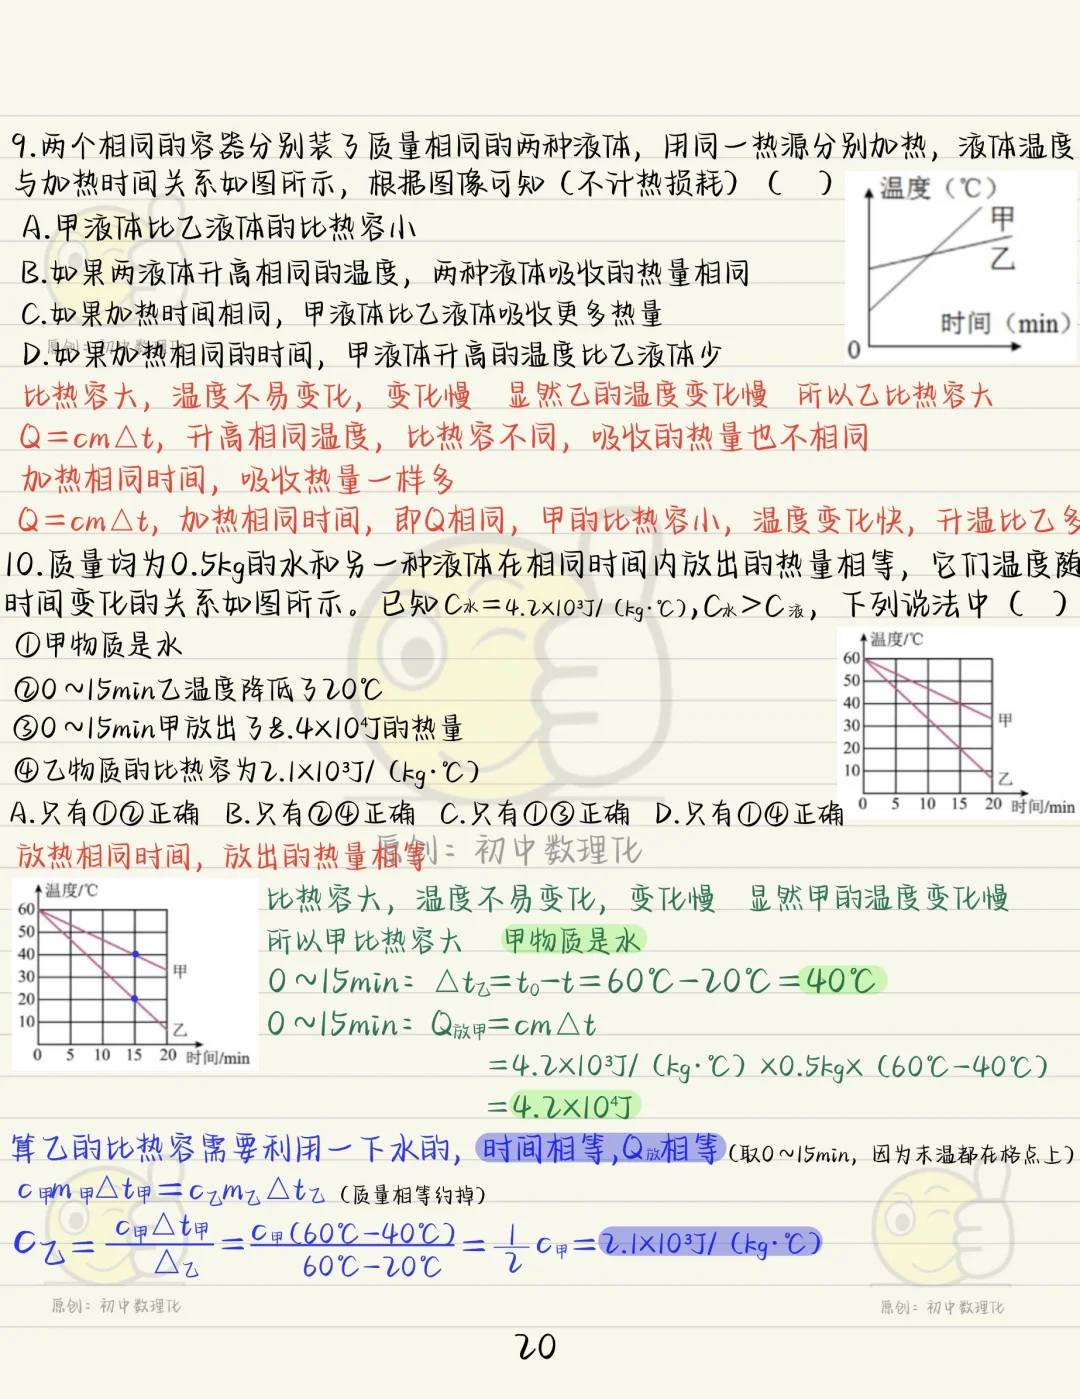 9.两个相同的容器分别装了质量相同的两种液体，用同一热源分别加热，液体温度
与加热时间关系如图所示，根据图像可知（不计热损耗）（　）
温度（℃）
甲
乙
时间（min）
0
A.甲液体比乙液体的比热容小
B.如果两液体升高相同的温度，两种液体吸收的热量相同
C.如果加热时间相同，甲液体比乙液体吸收更多热量
D.如果加热相同的时间，甲液体升高的温度比乙液体少
原创：初中数理化
比热容大，温度不易变化，变化慢　显然乙的温度变化慢　所以乙比热容大
Q=cm△t，升高相同温度，比热容不同，吸收的热量也不相同
加热相同时间，吸收热量一样多
Q=cm△t，加热相同时间，即Q相同，甲的比热容小，温度变化快，升温比乙多
10.质量均为0.5kg的水和另一种液体在相同时间内放出的热量相等，它们温度随
时间变化的关系如图所示。已知C水=4.2×10³J/（kg·℃），C水>C液，下列说法中（　）
①甲物质是水
②0~15min乙温度降低了20℃
③0~15min甲放出了8.4×10⁴J的热量
④乙物质的比热容为2.1×10³J/（kg·℃）
温度/℃
60
50
40
30
20
10
甲
乙
0 5 10 15 20 时间/min
A.只有①②正确　B.只有②④正确　C.只有①③正确　D.只有①④正确
放热相同时间，放出的热量相等
原创：初中数理化
温度/℃
60
50
40
30
20
10
甲
乙
0 5 10 15 20 时间/min
比热容大，温度不易变化，变化慢　显然甲的温度变化慢
所以甲比热容大　甲物质是水
0~15min：△t乙=t₀-t=60℃-20℃=40℃
0~15min：Q放甲=cm△t
=4.2×10³J/（kg·℃）×0.5kg×（60℃-40℃）
=4.2×10⁴J
算乙的比热容需要利用一下水的，时间相等,Q放相等（取0~15min，因为末温都在格点上）
c甲m甲△t甲=c乙m乙△t乙（质量相等约掉）
c乙=c甲△t甲/△乙=c甲(60℃-40℃)/60℃-20℃=1/2c甲=2.1×10³J/（kg·℃）
原创：初中数理化
原创：初中数理化
20